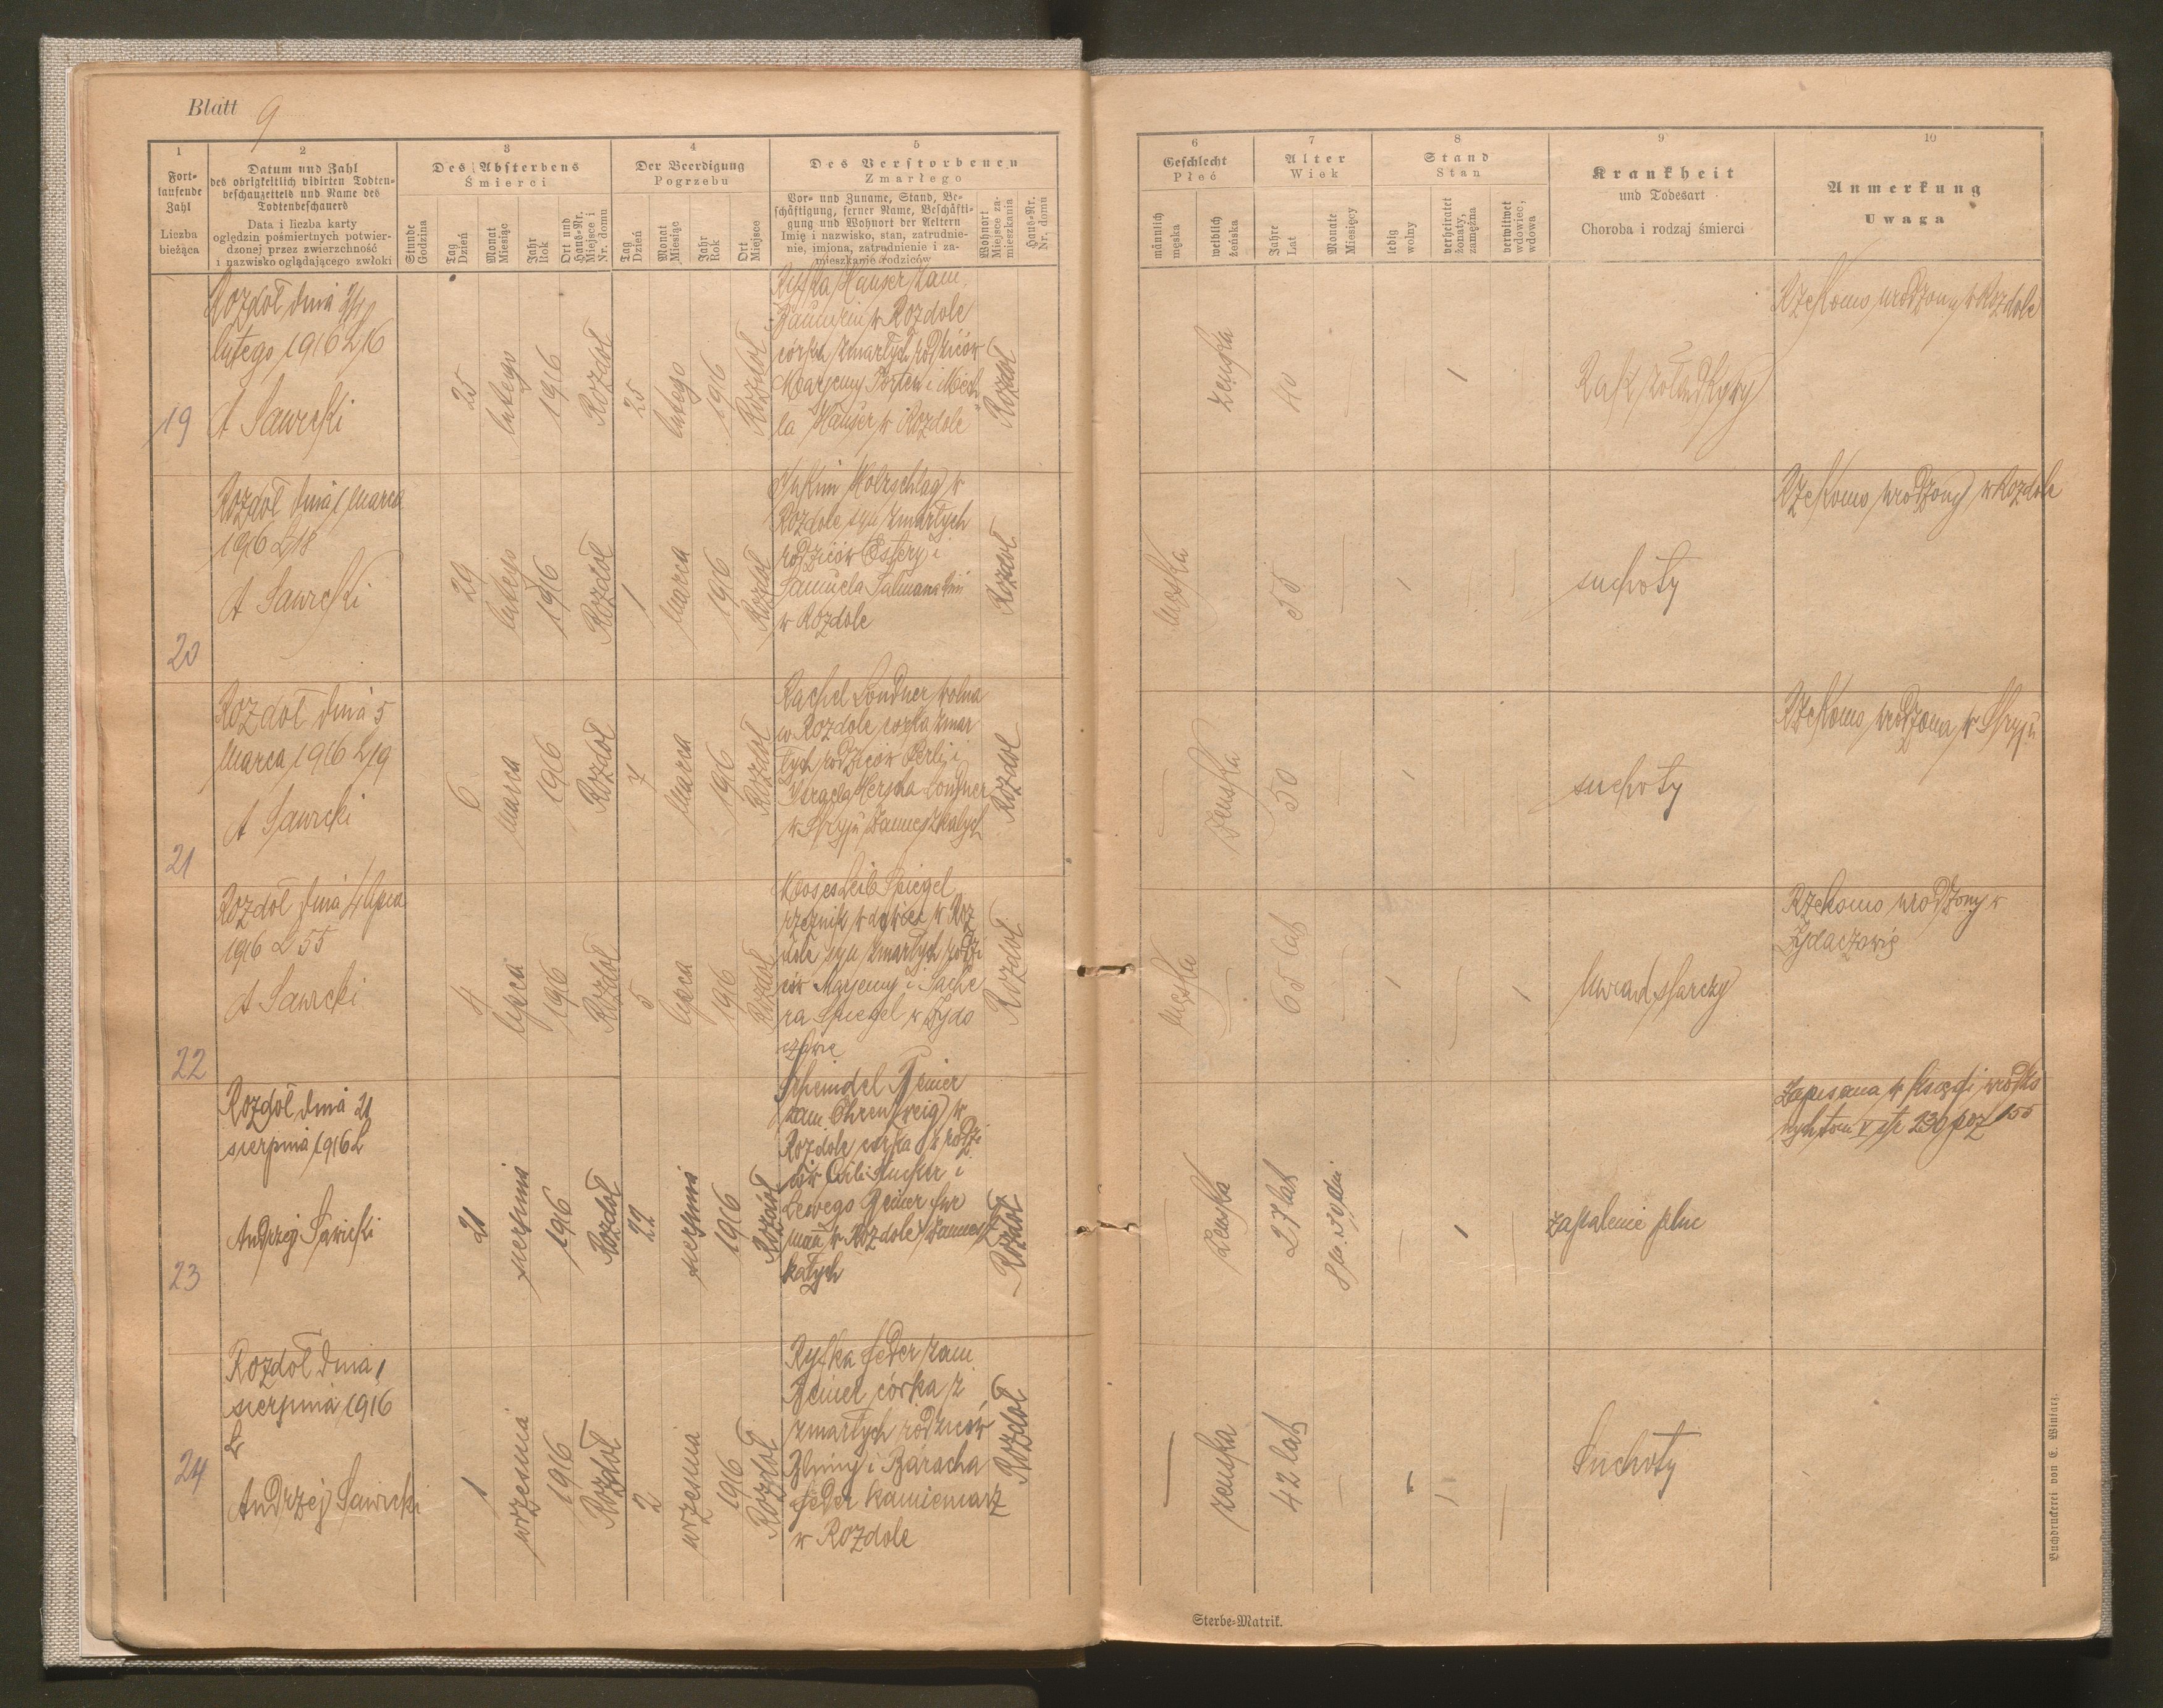 Blatt 9
1
Fort-
laufende
Zahl
Liczba
bieżąca
2
Datum und Zahl
des obrigkeitlich vidirten Todten-
beschauzettels und Name des
Todtenbeschauers
Data i liczba karty
oględzin pośmiertnych potwier-
dzonej przez zwierzchność
i nazwisko oglądającego zwłoki
3
Des Absterbens
Śmierci
Stunde
Godzina
Tag
Dzień
Monat
Miesiąc
Jahr
Rok
Ort und
Haus-Nr.
Miejsce i
Nr. domu
4
Der Beerdigung
Pogrzebu
Tag
Dzień
Monat
Miesiąc
Jahr
Rok
Ort
Miejsce
5
Des Verstorbenen
Zmarłego
Vor- und Zuname, Stand, Be-
schäftigung, ferner Name, Beschäfti-
gung und Wohnort der Aeltern
Imię i nazwisko, stan, zatrudnie-
nie, imiona, zatrudnienie i za-
mieszkanie rodziców
Wohnort
Miejsce za-
mieszkania
Haus-Nr.
Nr. domu
6
Geschlecht
Płeć
männlich
męska
weiblich
żeńska
7
Alter
Wiek
Jahre
Lat
Monate
Miesięcy
8
Stand
Stan
ledig
wolny
verheiratet
żonaty,
zamężna
verwitwet
wdowiec,
wdowa
9
Krankheit
und Todesart
Choroba i rodzaj śmierci
10
Anmerkung
Uwaga
19
Rozdół dnia
lutego 1916 L 16
A Sawicki
25
lutego
1916
Rozdół
25
lutego
1916
Rozdół
Ryfka Hauser zam.
w Rozdole
córka zmarłych rodziców
i Mech
la Hauser w Rozdole
Rozdół
żeńska
40
1
Rak żołądkowy
Rzekomo urodzony w Rozdole
20
Rozdół dnia 1 Marca
1916 L 18
A Sawicki
29
lutego
1916
Rozdół
1
Marca
1916
Rozdół
Holzschlag w
Rozdole syn zmarłych
rodziców Estery i
Samuela
w Rozdole
Rozdół
męska
55
suchoty
Rzekomo urodzony w Rozdole
21
Rozdół dnia 5
Marca 1916 L 19
A Sawicki
6
Marca
1916
Rozdół
7
Marca
1916
Rozdół
Rachel Londner wolna
w Rozdole córka zmar
łych rodziców Perli i
Israela Herscha Londner
w Stryju zamieszkałych
Rozdół
żeńska
50
1
suchoty
Rzekomo urodzona w Stryju
22
Rozdół dnia 4 lipca
1916 L 55
A Sawicki
4
lipca
1916
Rozdół
5
lipca
1916
Rozdół
Moses Leib Spiegel
rzeźnik wdowiec w Roz
dole syn zmarłych rodzi
ców Maryemy i Sache
ra Spiegel w Żyda
czowie
Rozdół
męska
65 lat
1
Uwiąd starczy
Rzekomo urodzony w
Żydaczowie
23
Rozdół dnia 21
sierpnia 1916 L
Andrzej Sawicki
21
sierpnia
1916
Rozdół
22
sierpnia
1916
Rozdół
Scheindel Reiner
zam. Ehrenzweig w
Rozdole córka z rodzi
ców i
fur
man w Rozdole zamiesz
kałych
Rozdół
żeńska
27 lat
1
zapalenie płuc
Zapisana w księdze urodzo
nych tom V str 230 poz 155
24
Rozdół dnia 1
sierpnia 1916
L
Andrzej Sawicki
1
września
1916
Rozdół
2
września
1916
Rozdół
Ryfka Feder zam
Reiner córka z
zmarłych rodziców
i Baracha
Feder kamieniarz
w Rozdole
Rozdół
żeńska
42 lat
Suchoty
Sterbe-Matrik.
Buchdruckerei von E. Winiarz.